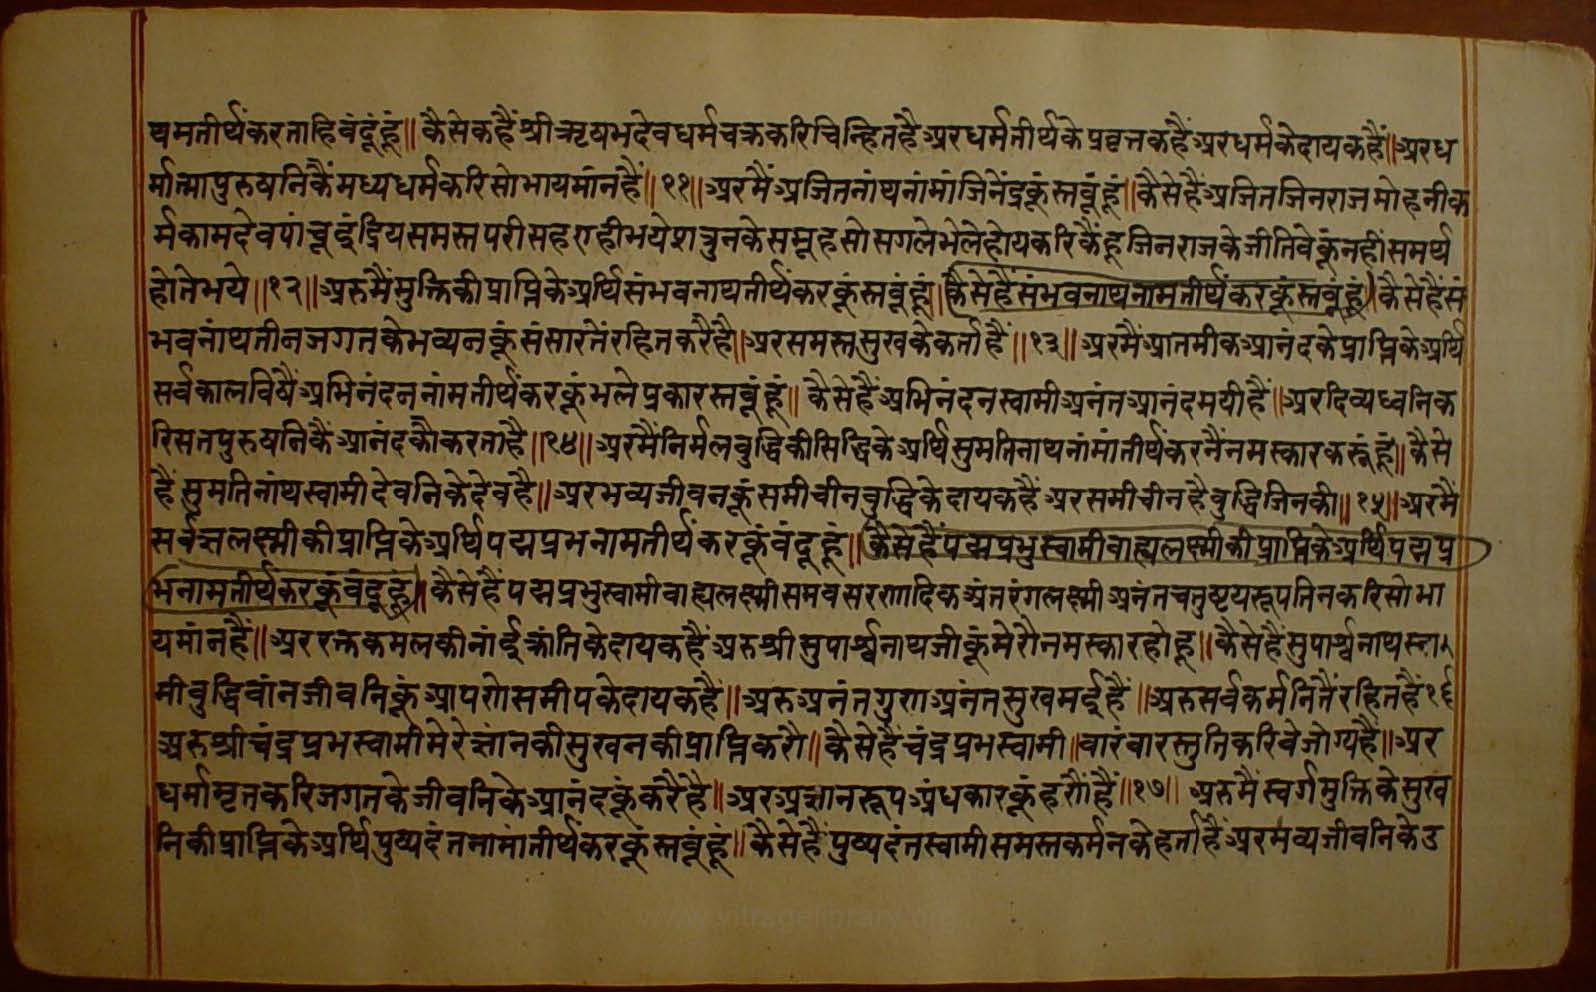 थमतीर्थंकरताहिबंदूंहूं॥ कैसेकहैंश्रीऋषभदेवधर्मचक्रकरिचिन्हितहैअरधर्मतीर्थकेप्रवृत्तकहैंअरधर्मकेदायकहैं॥अरध
र्मात्मापुरुषनिकैंमध्यधर्मकरिसोभायमांनहैं॥११॥अरमैंअजितनांथनांमांजिनेंद्रकूंस्तवूंहूं॥कैसेहैंअजितजिनराजमोहनीक
र्मकामदेवपांचूइंद्रियसमस्तपरीसहरुहीभयेशत्रुनकेसमूहसोसगलेभेलेहोयकरिकैंहूजिनराजकेजीतिवेकूंनहींसमर्थ
होतेभये॥१२॥अरुमैंमुक्तिकीप्राप्तिकेअर्थिसंभवनाथतीर्थंकरकूंस्तवूंहूं॥कैसेहैंसंभवनाथनामतीर्थंकरकूंस्तवूंहूं॥कैसेहैंसं
भवनांथतीनजगतकेभव्यनकूंसंसारतेंरहितकरैहै॥अरसमस्तसुखकेकर्त्ताहैं॥१३॥ अरमैंआतमीकआनंदकेप्राप्तिकेअर्थि
सर्वकालविषैंअभिनंदननांमतीर्थंकरकूंभलेप्रकारस्तवूंहूं॥ कैसेहैंअभिनंदनस्वामीअनंतआनंदमयीहैं॥अरदिव्यध्वनिक
रिसतपुरुषनिकैंआनंदकौकरताहै॥१४॥ अरमैंनिर्मलबुद्धिकीसिद्धिकेअर्थिसुमतिनाथनांमांतीर्थंकरनैंनमस्कारकरूंहूं॥ कैसे
हैंसुमतिनांथस्वामीदेवनिकेदेवहै॥ अरभव्यजीवनकूंसमीचीनबुद्धिकेदायकहैंअरसमीचीनहैबुद्धिजिनकी॥१५॥अरमैं
सर्वज्ञलक्ष्मीकीप्राप्तिकेअर्थिपद्मप्रभनामतीर्थंकरकूंबंदूहूं॥कैसेहैंपद्मप्रभुस्वामीवाह्यलक्ष्मीकीप्राप्तिकेअर्थिपद्मप्र
भनामतीर्थंकरकूंबंदूहूं॥कैसेहैंपद्मप्रभुस्वामीवाह्यलक्ष्मीसमवसरणादिकअंतरंगलक्ष्मीअनंतचतुष्टयरूपतिनकरिसोभा
यमांनहैं॥ अररक्तकमलकीनांईंक्रांतिकेदायकहैंअरुश्रीसुपार्श्वनाथजीकूंमेरौनमस्कारहोहू॥कैसेहैंसुपार्श्वनाथस्वा
मीबुद्धिवांनजीवनिकूंआपणेसमीपकेदायकहैं॥अरुअनंतगुणअनंतसुखमईहैं॥अरुसर्वकर्मनितैंरहितहैं१६
अरुश्रीचंद्रप्रभस्वामीमेरेज्ञांनकीसुखनकीप्राप्तिकरौ॥ कैसेहैंचंद्रप्रभस्वामी॥वारंवारस्तुतिकरिवेजोग्यहै॥अर
धर्मामृतकरिजगतकेजीवनिकेआनंदकूंकरैहै॥ अरअज्ञानरूपअंधकारकूंहरणेंहैं॥१७॥ अरुमैंस्वर्गमुक्तिकेसुख
निकीप्राप्तिकेअर्थिपुष्पदंतनामांतीर्थंकरकूंस्तवूंहूं॥कैसेहैंपुष्पदंतस्वामीसमस्तकर्मनकेहर्ताहैंअरभव्यजीवनिकेउ